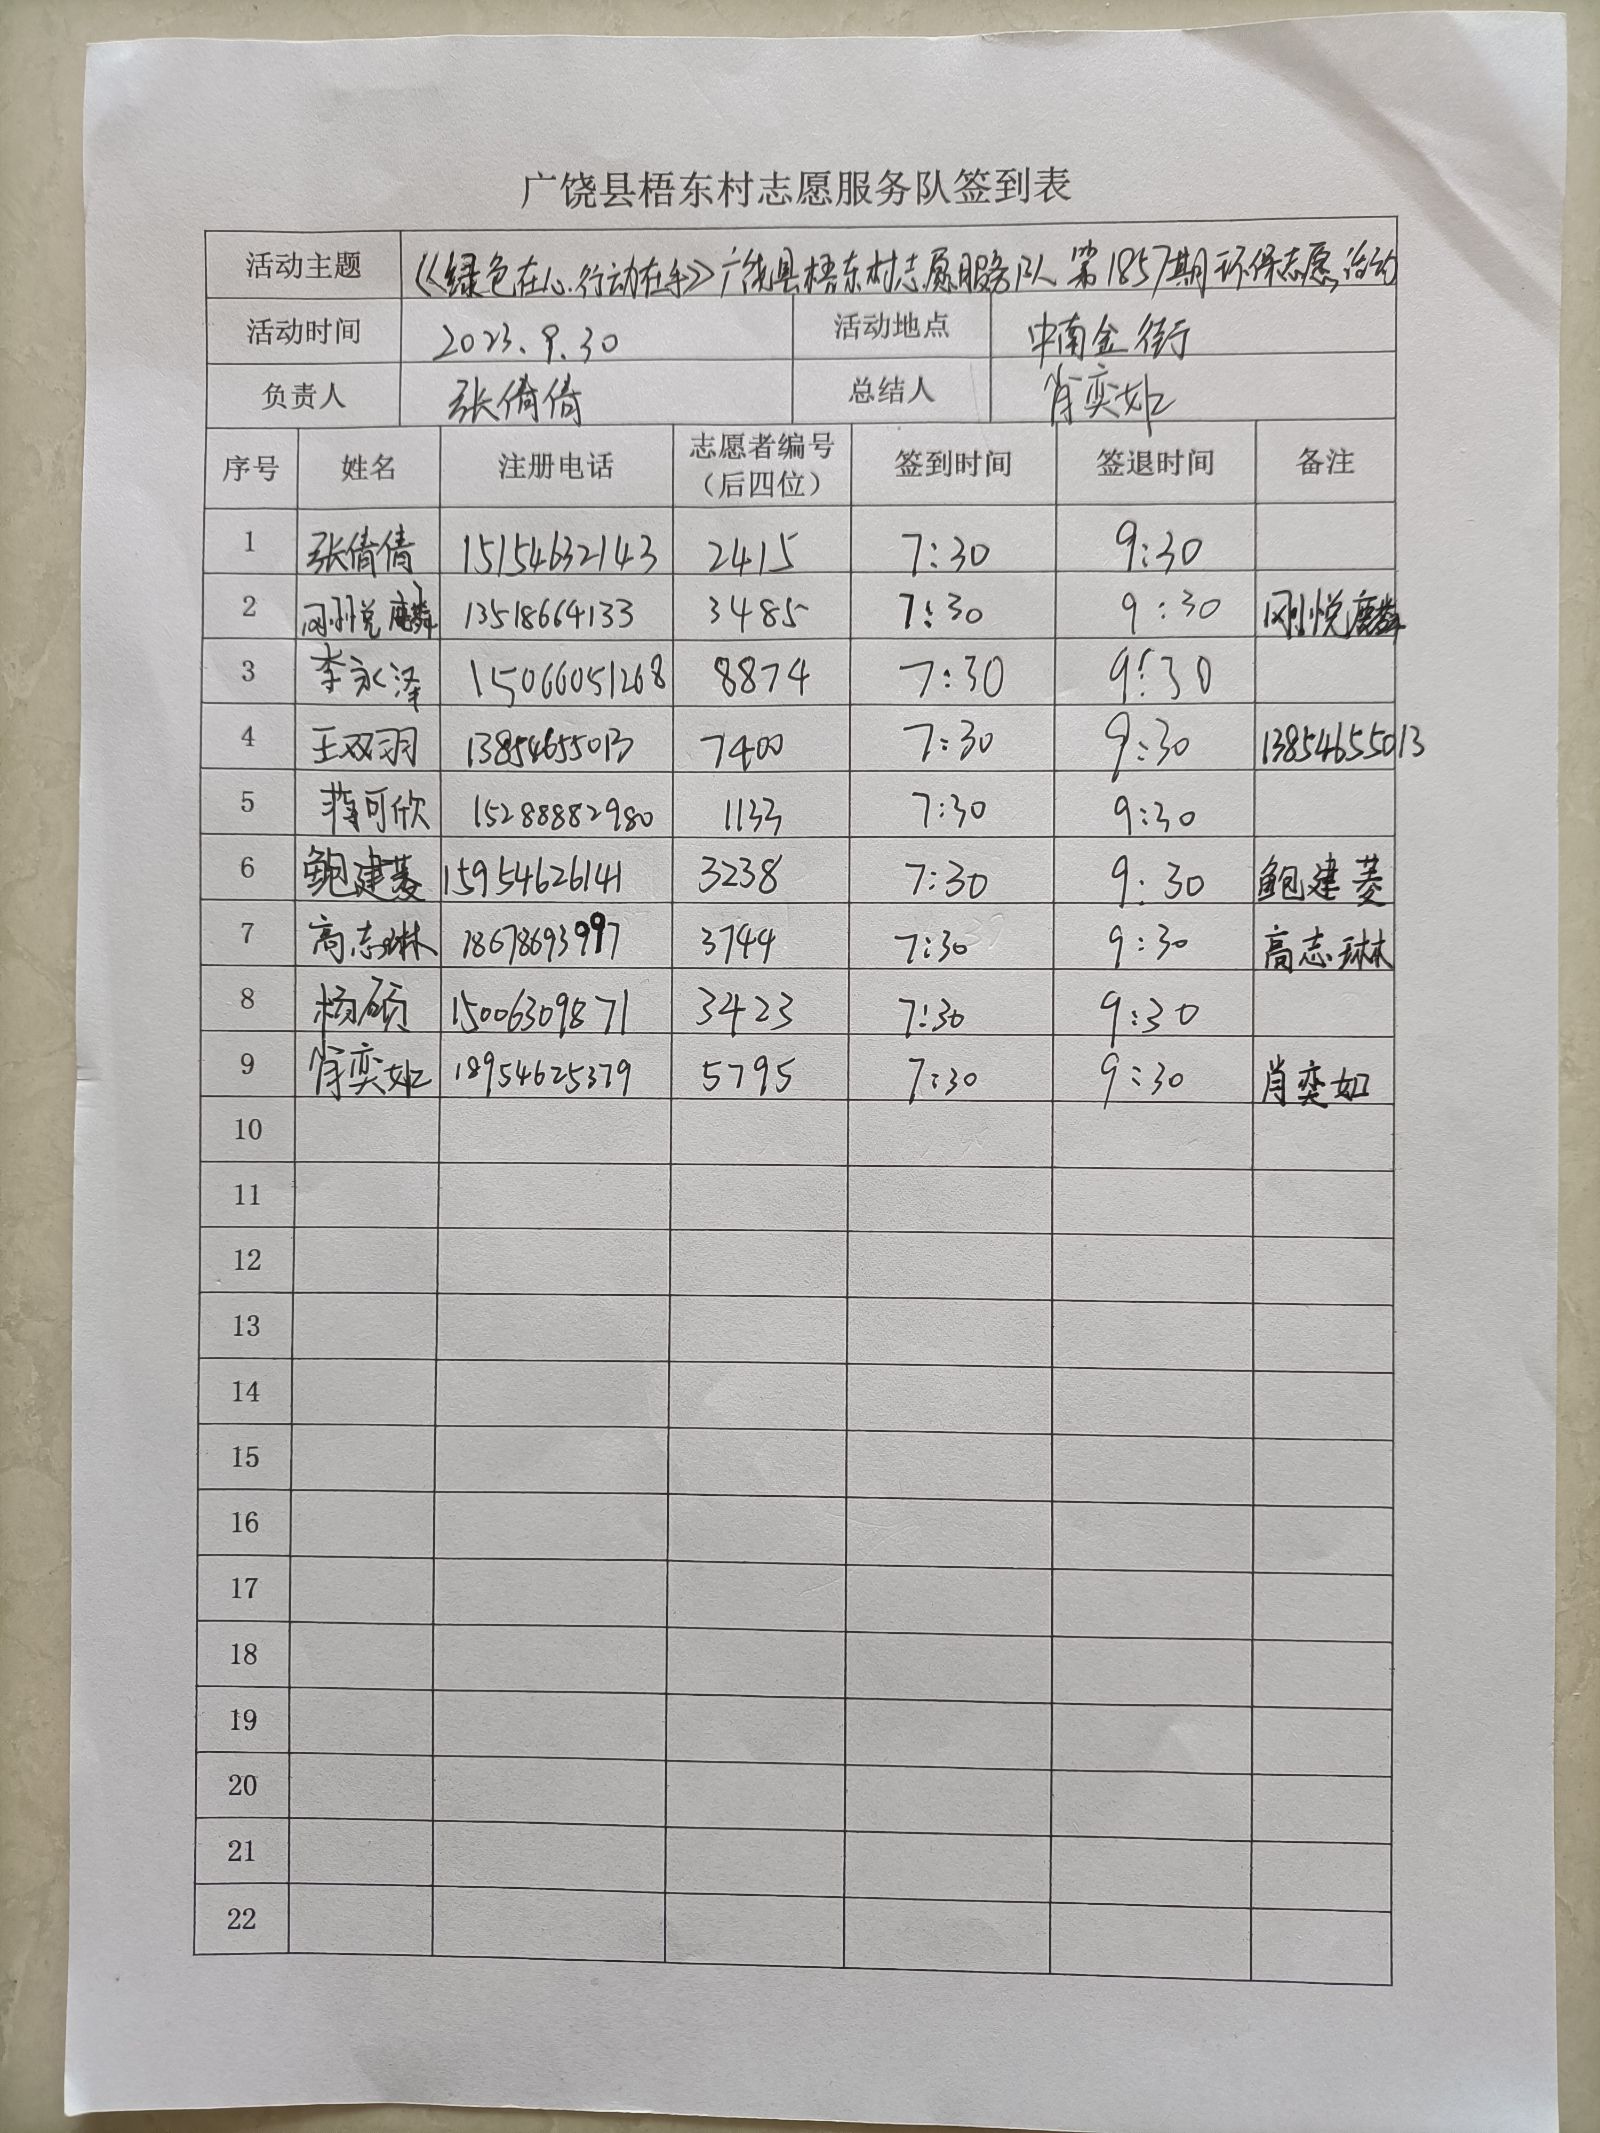 广饶县梧东村志愿服务队签到表
活动主题 《绿色在心.行动在手》广饶县梧东村志愿服务队第1857期环保志愿活动
活动时间 2023.9.30 活动地点 中南金街
负责人 张倩倩 总结人 肖奕如
序号 姓名 注册电话 志愿者编号（后四位） 签到时间 签退时间 备注
1 张倩倩 15154632143 2415 7:30 9:30
2 刚悦麟 13518664133 3485 7:30 9:30 刚悦麟
3 李永泽 15066051268 8874 7:30 9:30
4 王双羽 13854655013 7400 7:30 9:30 13854655013
5 蒋可欣 15288882980 1133 7:30 9:30
6 鲍建菱 15954626141 3238 7:30 9:30 鲍建菱
7 高志琳 18678693997 3744 7:30 9:30 高志琳
8 杨硕 15006309871 3423 7:30 9:30
9 肖奕如 18954625379 5795 7:30 9:30 肖奕如
10
11
12
13
14
15
16
17
18
19
20
21
22